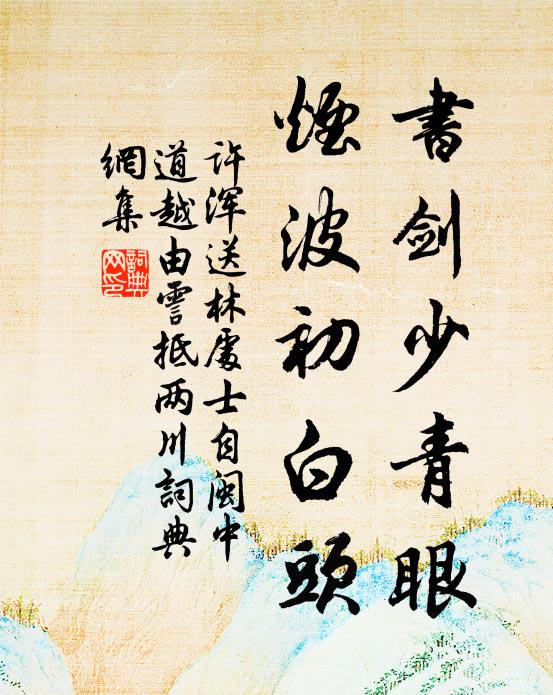 書劍少青眼
煙波初白頭
许浑送林處士自闽中
道越由霅抵两川詞典
網集
詞典网印